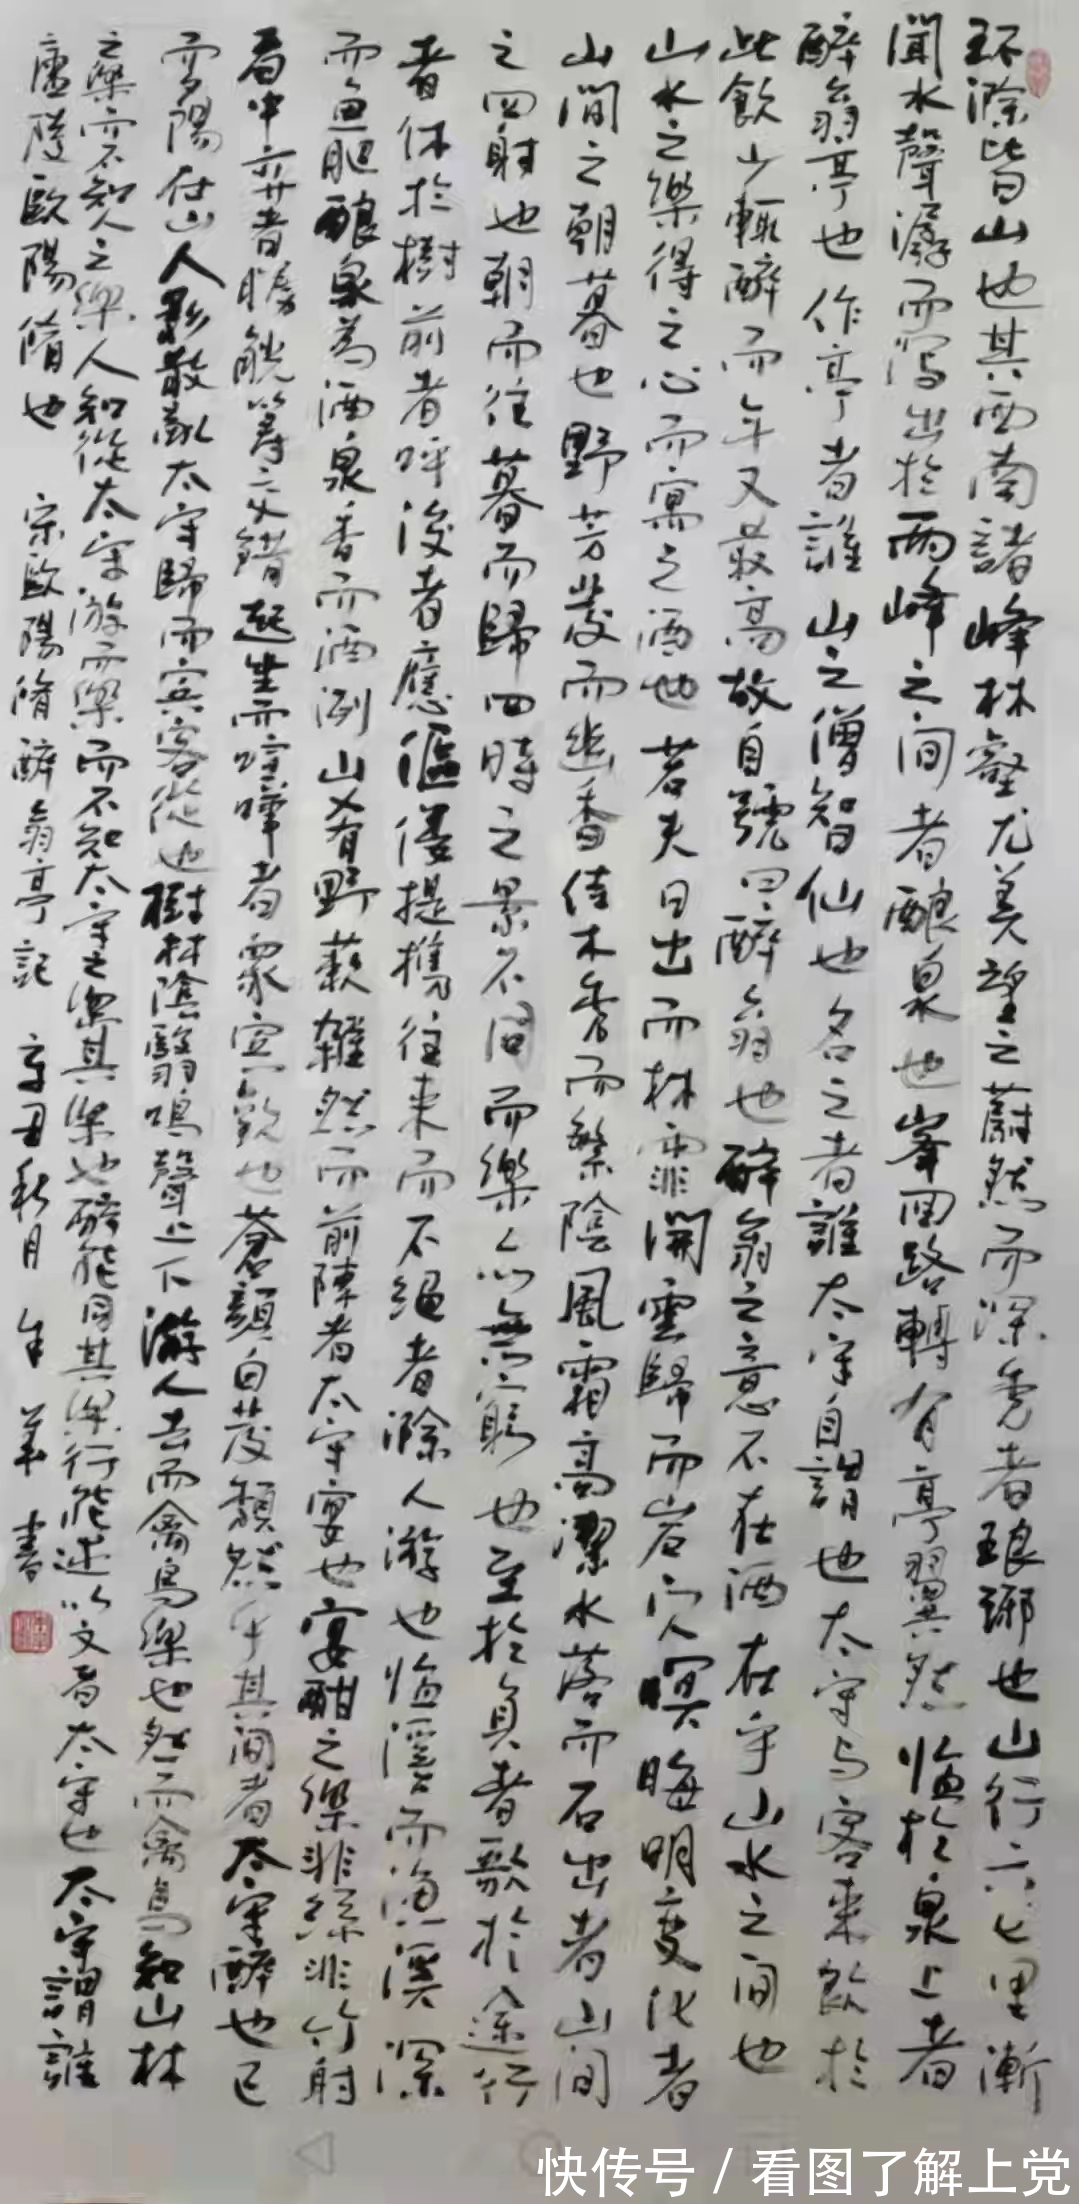 环滁皆山也其西南諸峰林壑尤美望之蔚然而深秀者琅琊也山行六七里漸
聞水聲潺而瀉出於兩峰之间者釀泉也峯回路轉有亭翼然临於泉上者
醉翁亭也作亭者誰山之僧智仙也名之者誰太守自謂也太守与客来飲於
此飲少輒醉而年又最高故自號曰醉翁也醉翁之意不在酒在乎山水之间也
山水之樂得之心而寓之酒也若夫日出而林霏開雲歸而岩穴暝晦明变化者
山間之朝暮也野芳發而幽香佳木秀而繁陰風霜高潔水落而石出者山间
之四時也朝而往暮而歸四時之景不同而樂亦無穷也至於負者歌於途行
者休於樹前者呼後者應傴僂提攜往来而不絕者滁人游也临溪而渔溪深
而魚肥釀泉為酒泉香而酒洌山肴野蔌雜然而前陳者太守宴也宴酣之樂非絲非竹射
者中弈者勝觥籌交錯起坐而喧嘩者眾宾歡也蒼顏白发頹然乎其间者太守醉也已
而夕陽在山人影散亂太守歸而宾客從也樹林陰翳鳴聲上下游人去而禽鳥樂也然而禽鳥知山林
之樂而不知人之樂人知從太守游而樂而不知太守之樂其樂也醉能同其樂行能述以文者太守也太守謂誰
廬陵歐陽脩也 宋歐陽脩醉翁亭記 辛丑秋月 書
快传号/看图了解上党